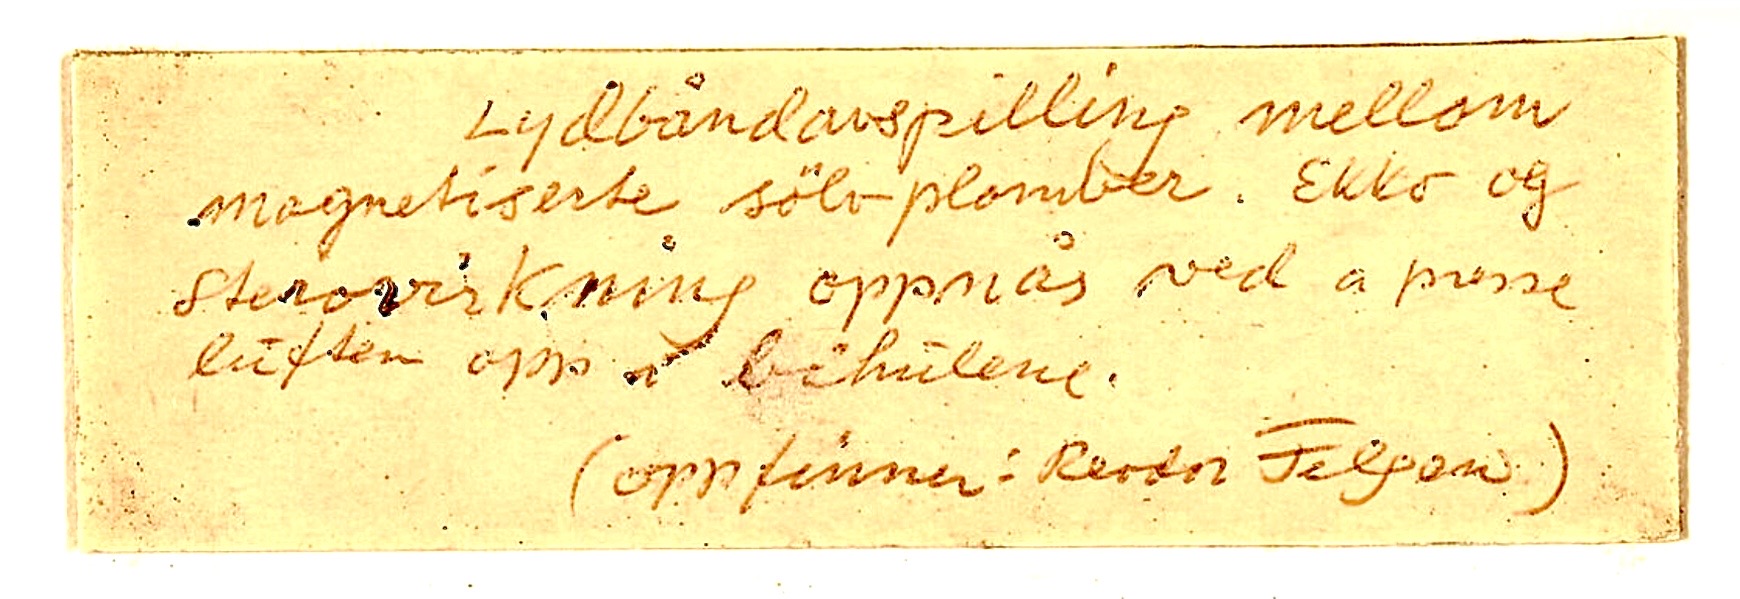 Lydbåndavspilling mellom
magnetiserte sölv-plomber. Ekko og
sterovirkning oppnås ved å presse
luften opp i bihulene.
(oppfinner: Reodor Felgen)